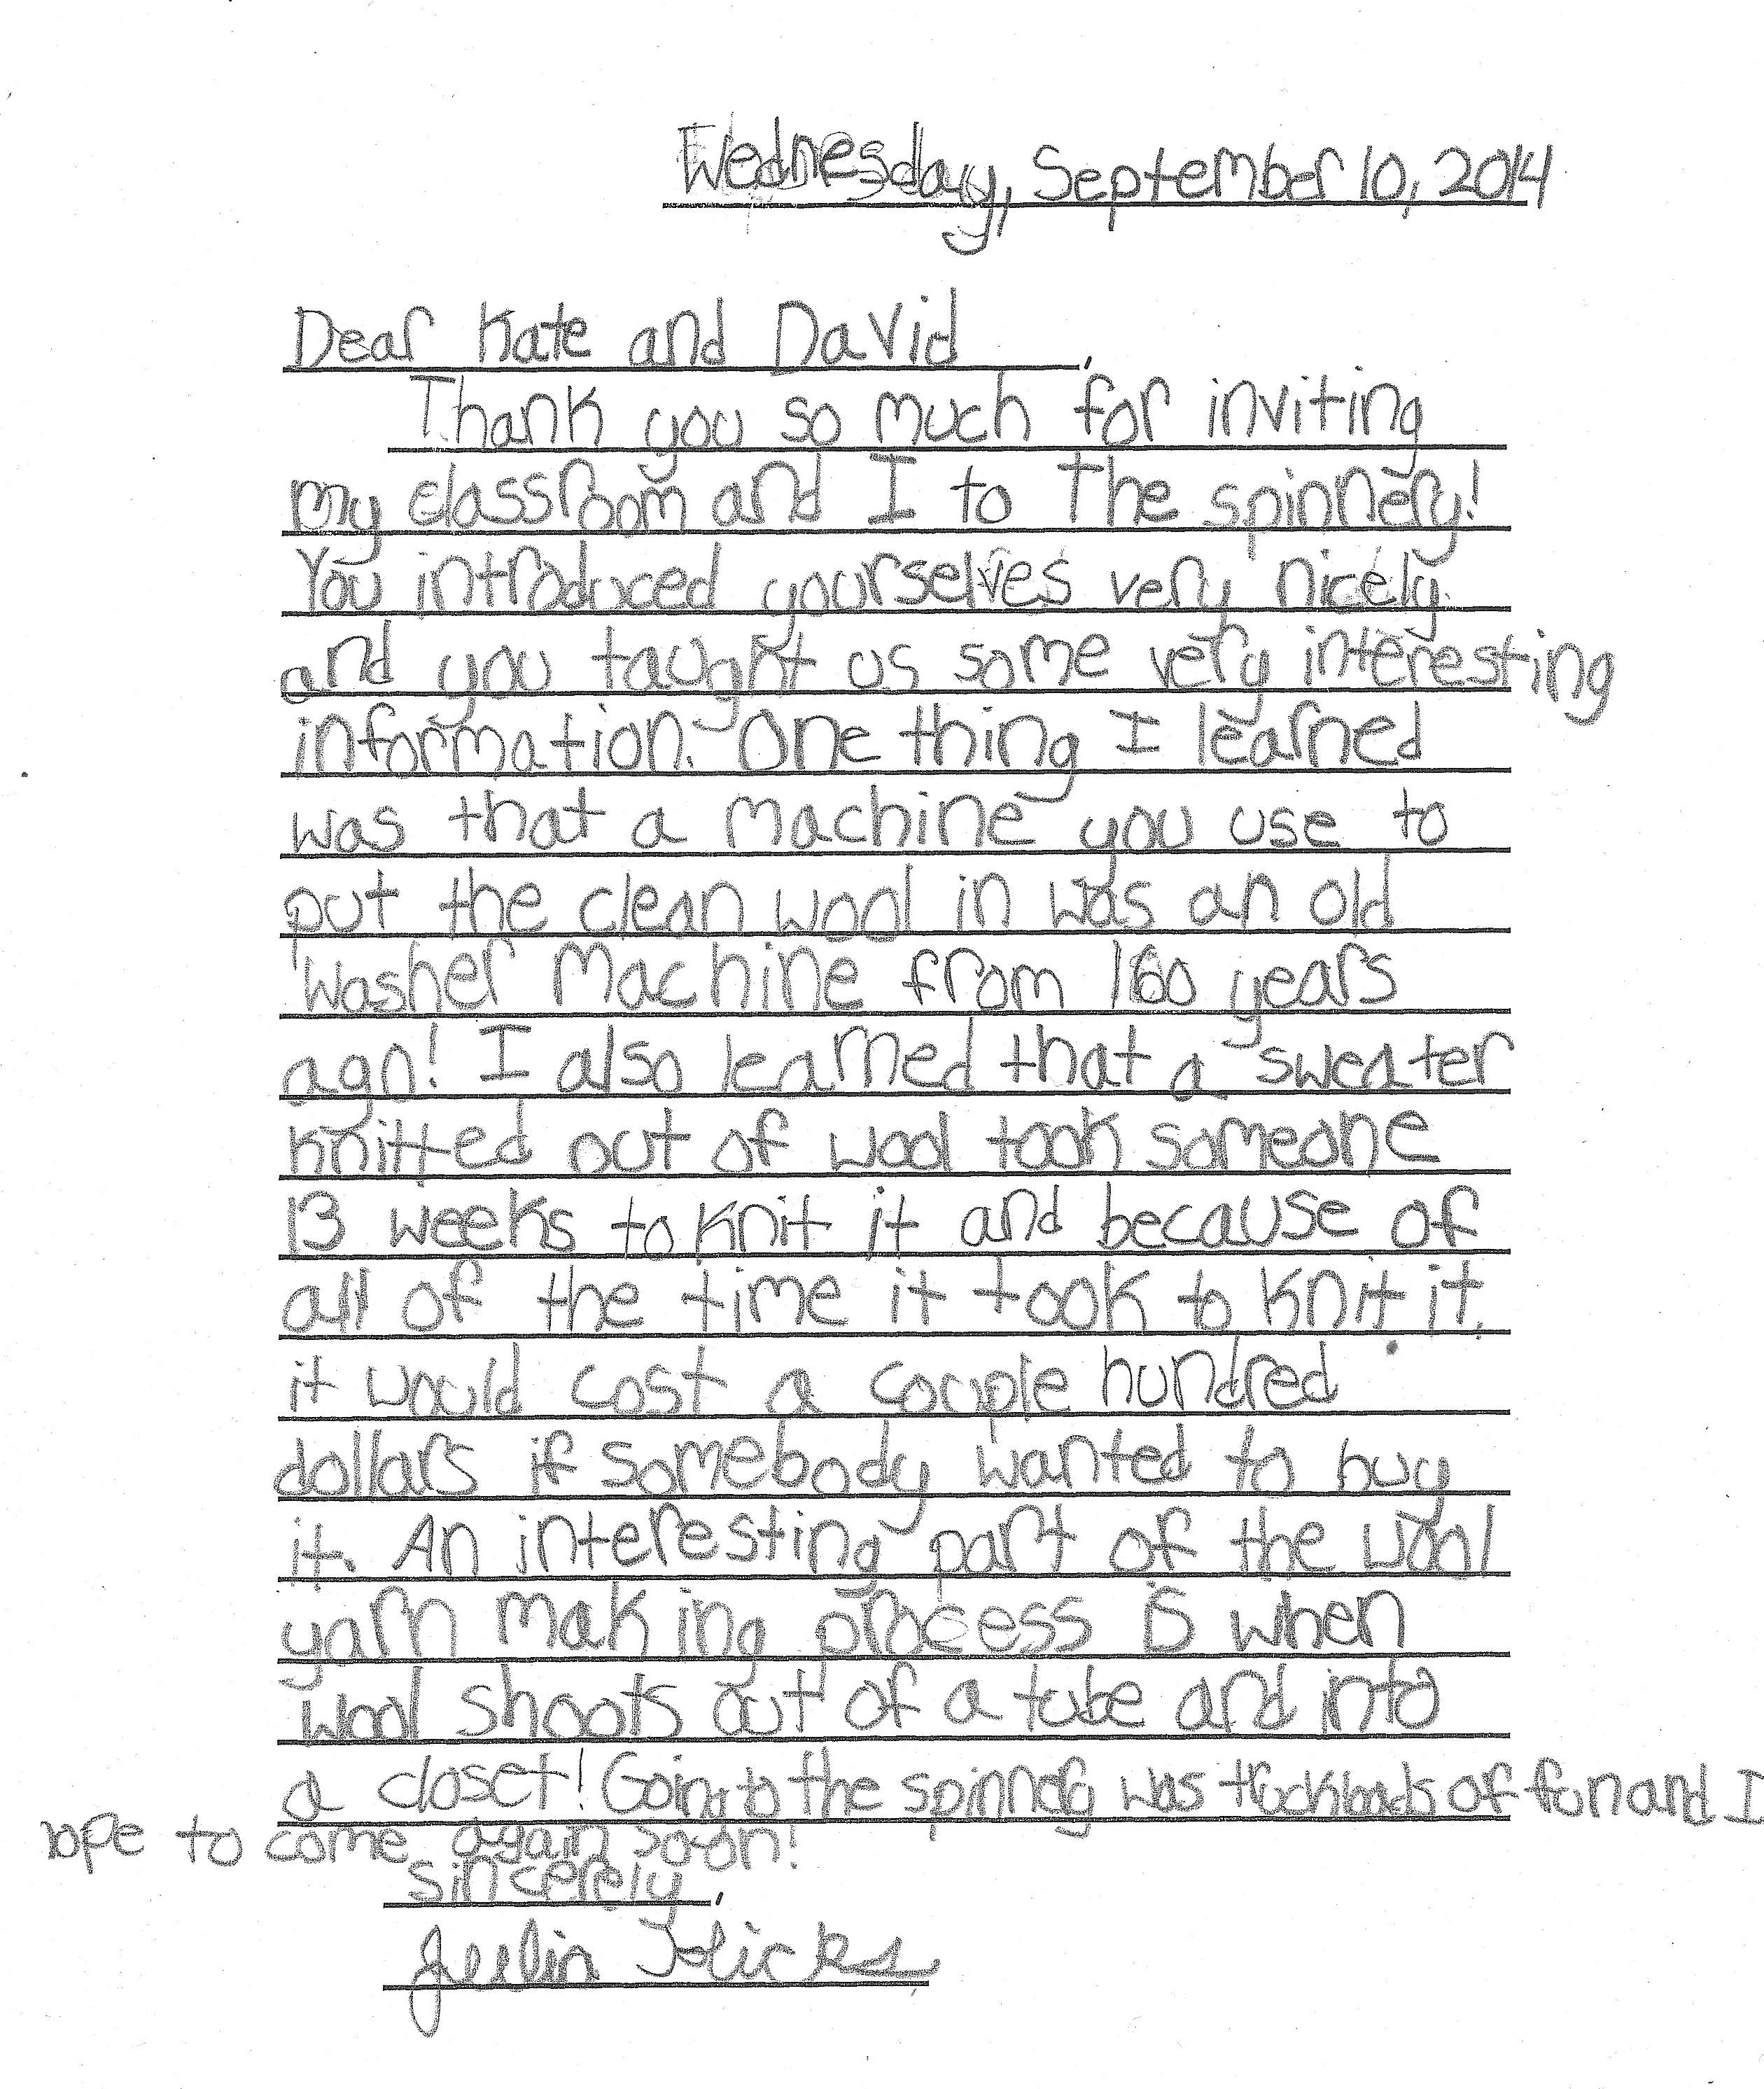 Wednesday, September 10, 2014
Dear Kate and David,
Thank you so much for inviting
my classroom and I to the spinnery!
You introduced yourselves very nicely
and you taught us some very interesting
information. One thing I learned
was that a machine you use to
put the clean wool in was an old
washer machine from 160 years
ago! I also learned that a sweater
knitted out of wool took someone
13 weeks to knit it and because of
all of the time it took to knit it,
it would cost a couple hundred
dollars if somebody wanted to buy
it. An interesting part of the wool
yarn making process is when
wool shoots out of a tube and into
a closet! Going to the spinnery was truckloads of fun and I
hope to come again soon!
Sincerely,
Julia Hicks